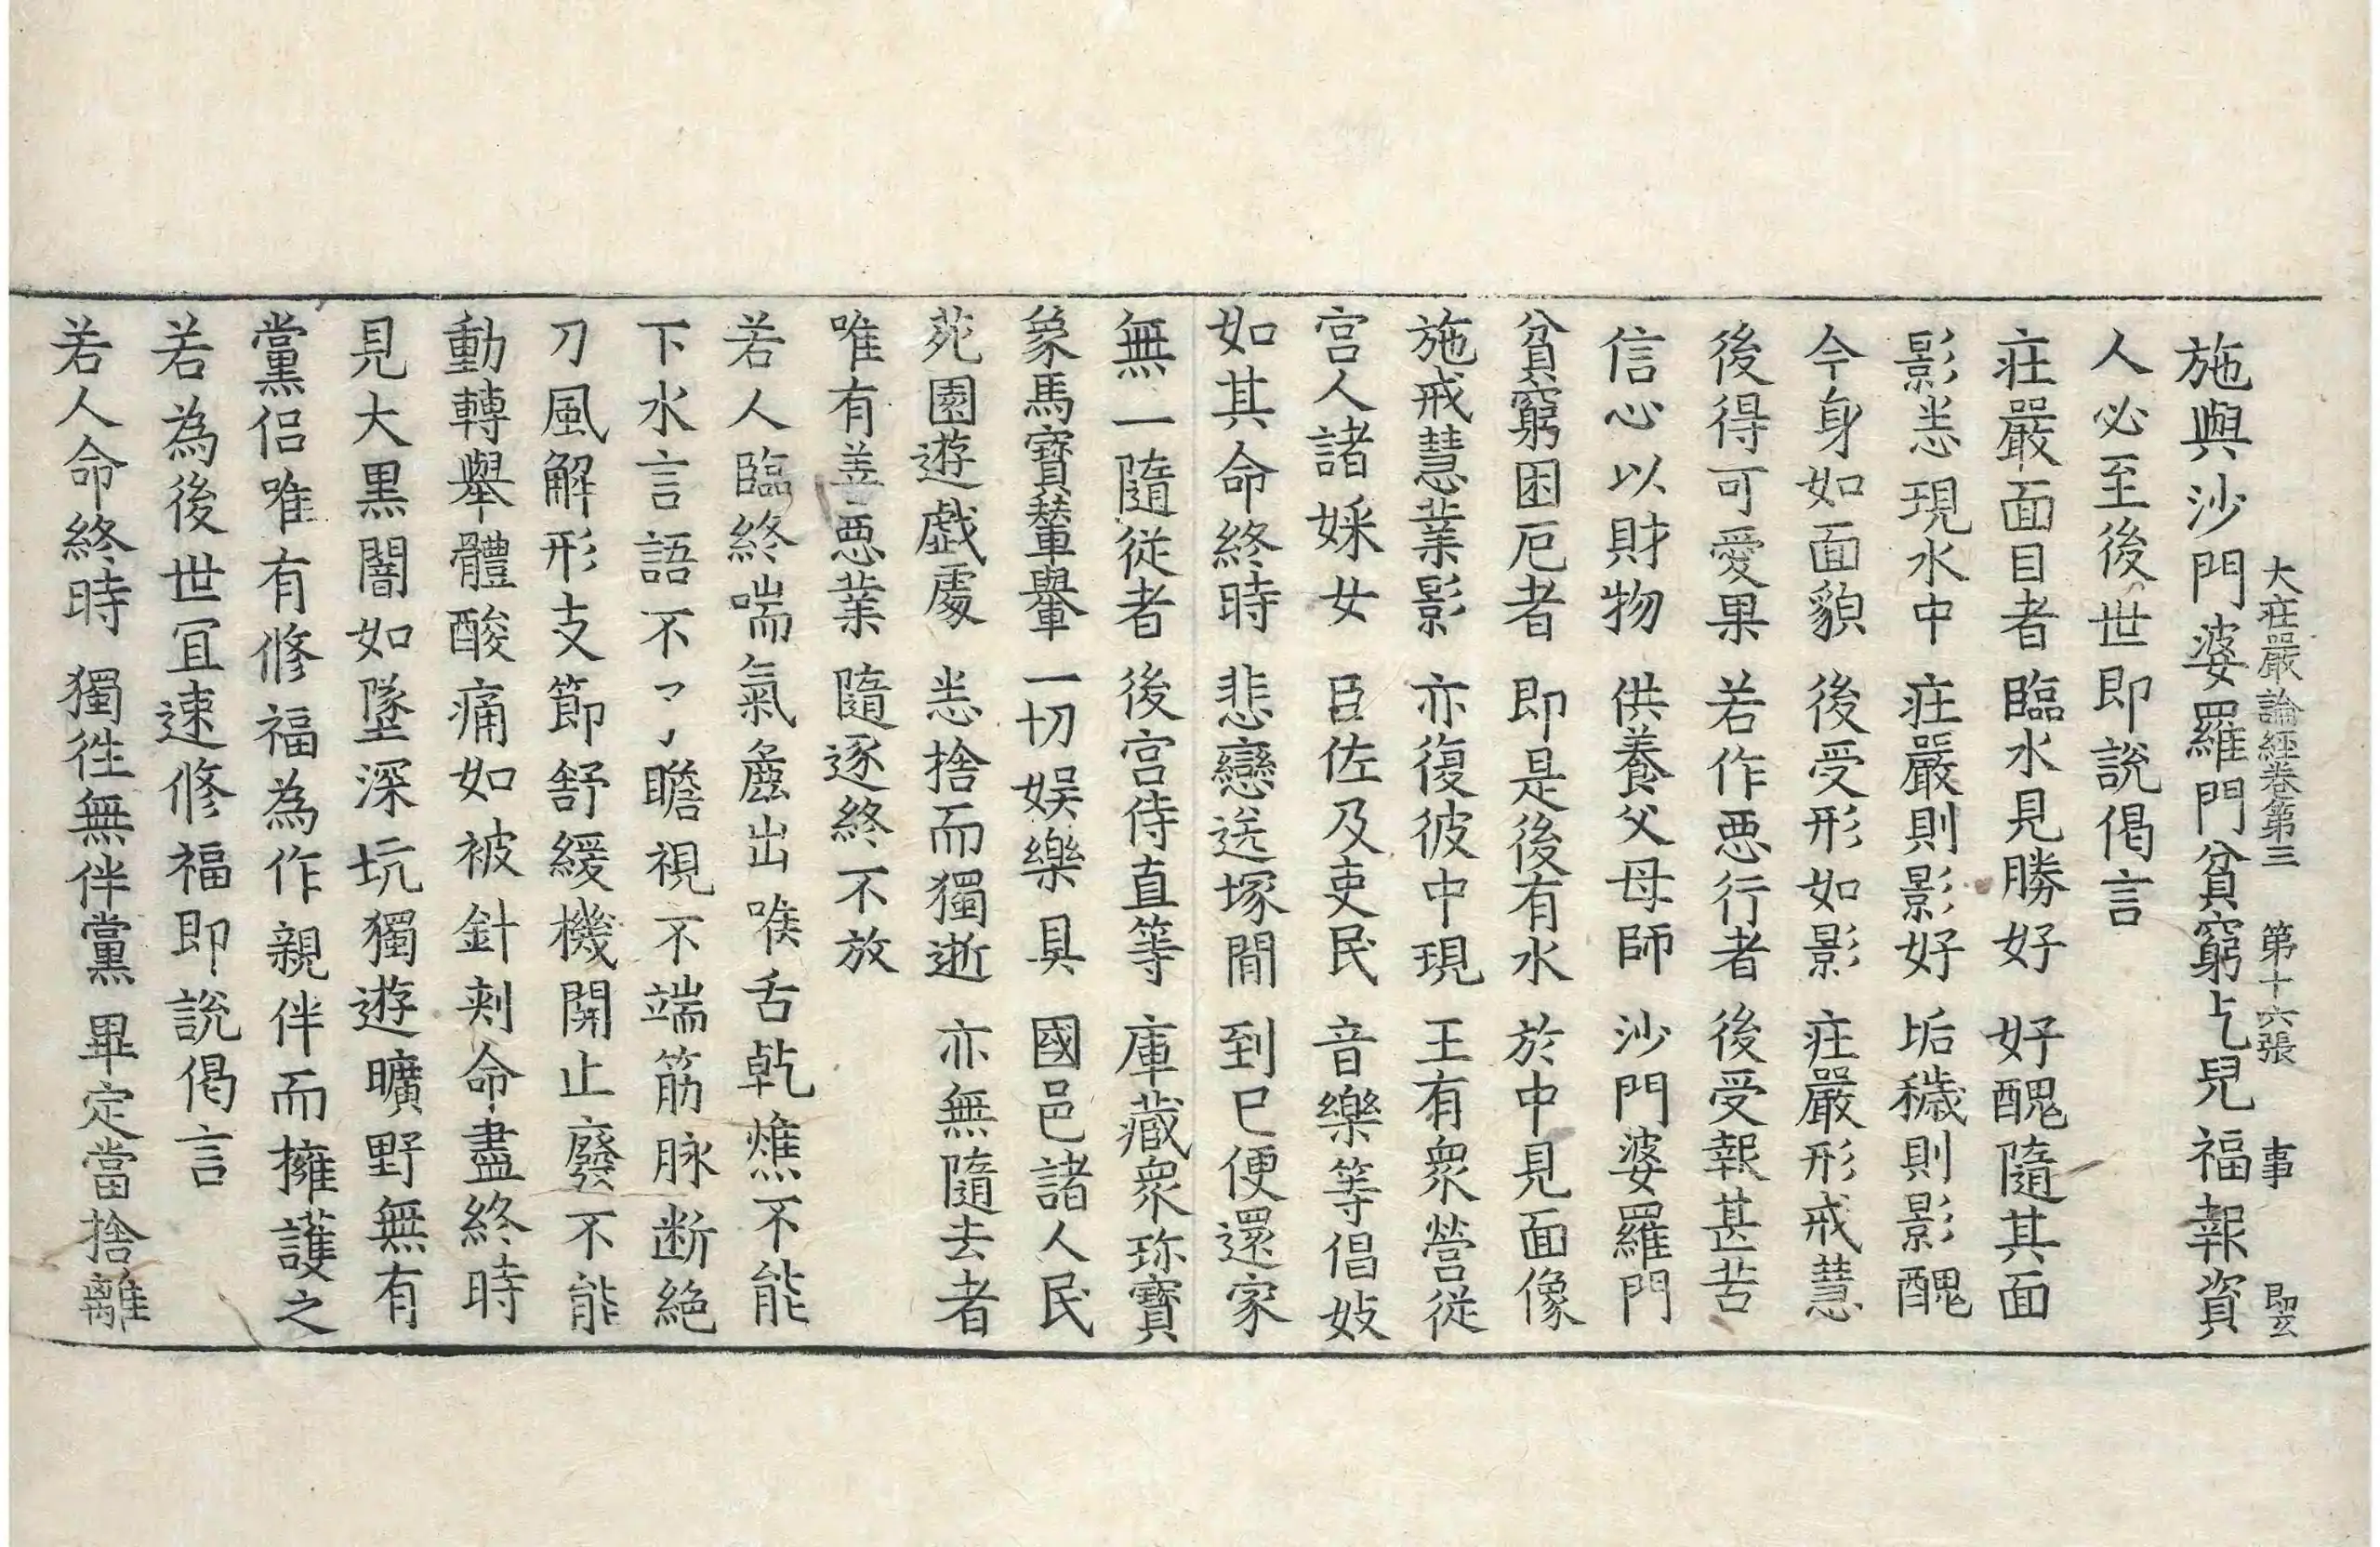 大㽵嚴論經卷第三 第十六張 事
施與沙門婆羅門貧窮乞兒福報資
人必至後世即說偈言
㽵嚴面目者 臨水見勝好 好醜隨其面
影悉現水中 㽵嚴則影好 垢穢則影醜
今身如面貌 後受形如影 㽵嚴形戒慧
後得可愛果 若作惡行者 後受報甚苦
信心以財物 供養父母師 沙門婆羅門
貧窮困厄者 即是後有水 於中見面像
施戒慧業影 亦復彼中現 王有眾營從
宮人諸婇女 臣佐及吏民 音樂等倡妓
如其命終時 悲戀送塚間 到已便還家
無一隨從者 後宮侍直等 庫藏眾珎寶
象馬寶輦轝 一切娛樂具 國邑諸人民
苑園遊戲處 悉捨而獨逝 亦無隨去者
唯有善惡業 隨逐終不放
若人臨終喘氣麁出喉舌乾燋不能
下水言語不了瞻視不端筋脉断絕
刀風解形支節舒緩機關止廢不能
動轉舉體酸痛如被針刾命盡終時
見大黑闇如墜深坑獨遊曠野無有
黨侶唯有修福為作親伴而擁護之
若為後世宜速修福即說偈言
若人命終時 獨徃無伴黨 畢定當捨離